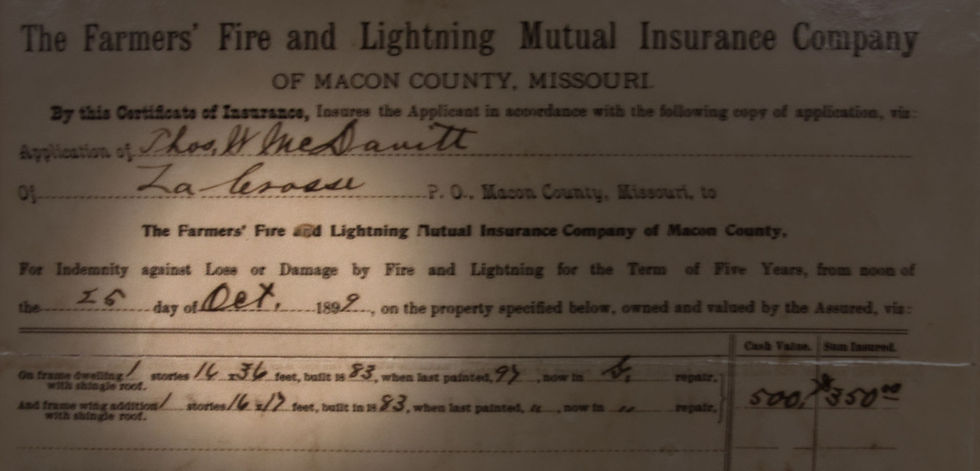 The Farmers' Fire and Lightning Mutual Insurance Company
OF MACON COUNTY, MISSOURI.
By this Certificate of Insurance, Insures the Applicant in accordance with the following copy of application, viz:
Application of Thos. W McDavitt
Of La Crosse P. O., Macon County, Missouri, to
The Farmers' Fire and Lightning Mutual Insurance Company of Macon County,
For Indemnity against Loss or Damage by Fire and Lightning for the Term of Five Years, from noon of
the 25 day of Oct. 1899, on the property specified below, owned and valued by the Assured, viz:
Cash Value. Sum Insured.
On frame dwelling 1 stories 16 x 36 feet, built 18 83, when last painted, 97, now in repair,
with shingle roof.
And frame wing addition 1 stories 16 x 17 feet, built in 18 83, when last painted, " , now in " repair,
with shingle roof.
500, 350 00